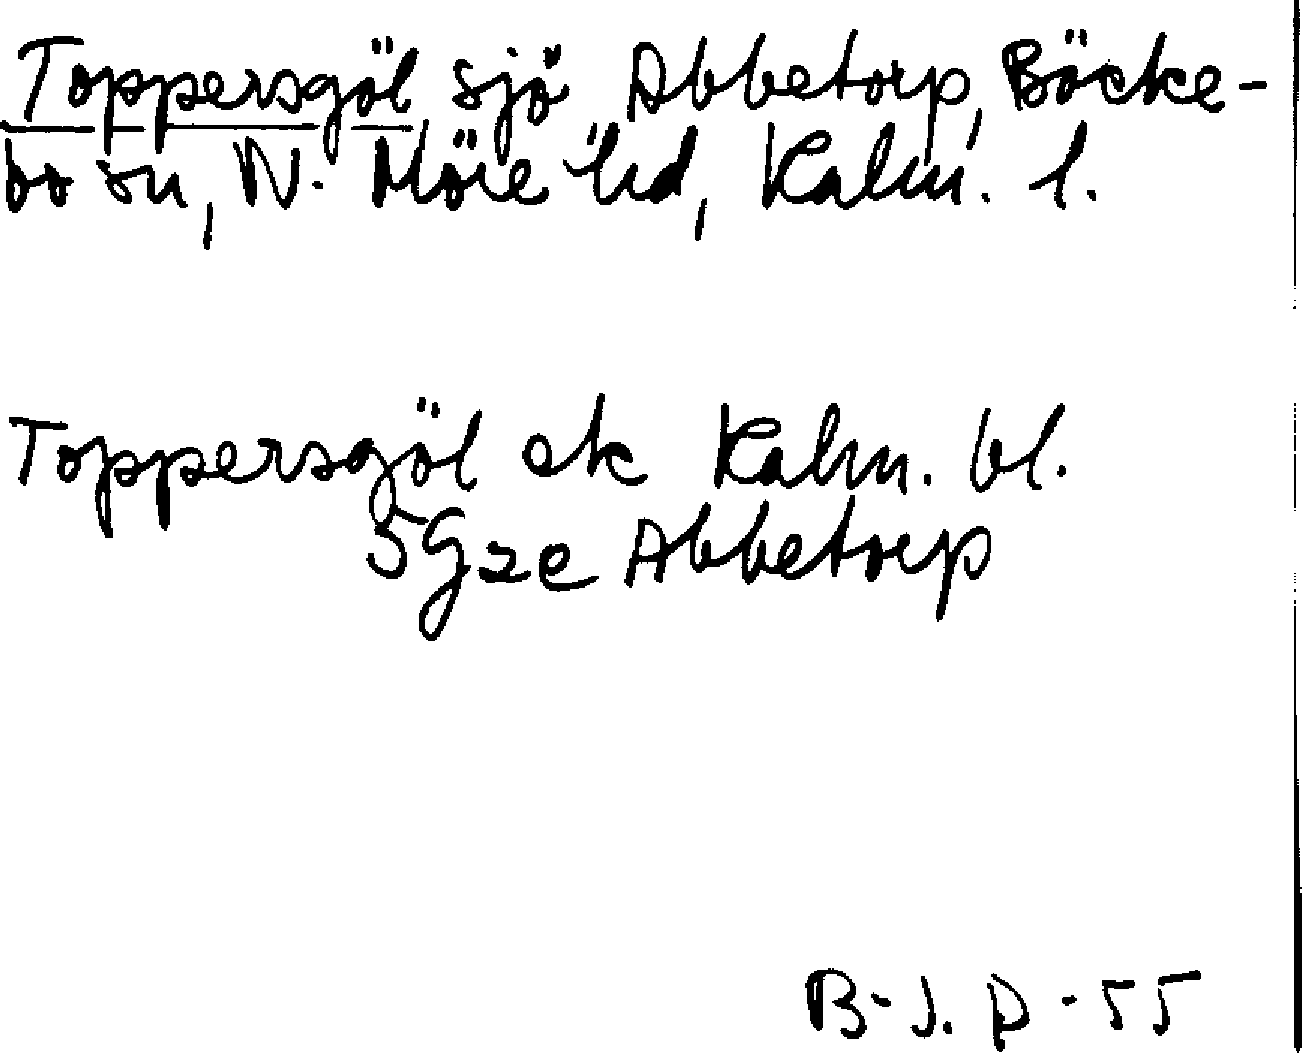 Toppersgöl sjö Abbetorp, Böcke-
bo sn, N. Möre hd, Kalm. l.
Toppersgöl ek Kalm. bl.
5G2e Abbetorp
B-J. D -55